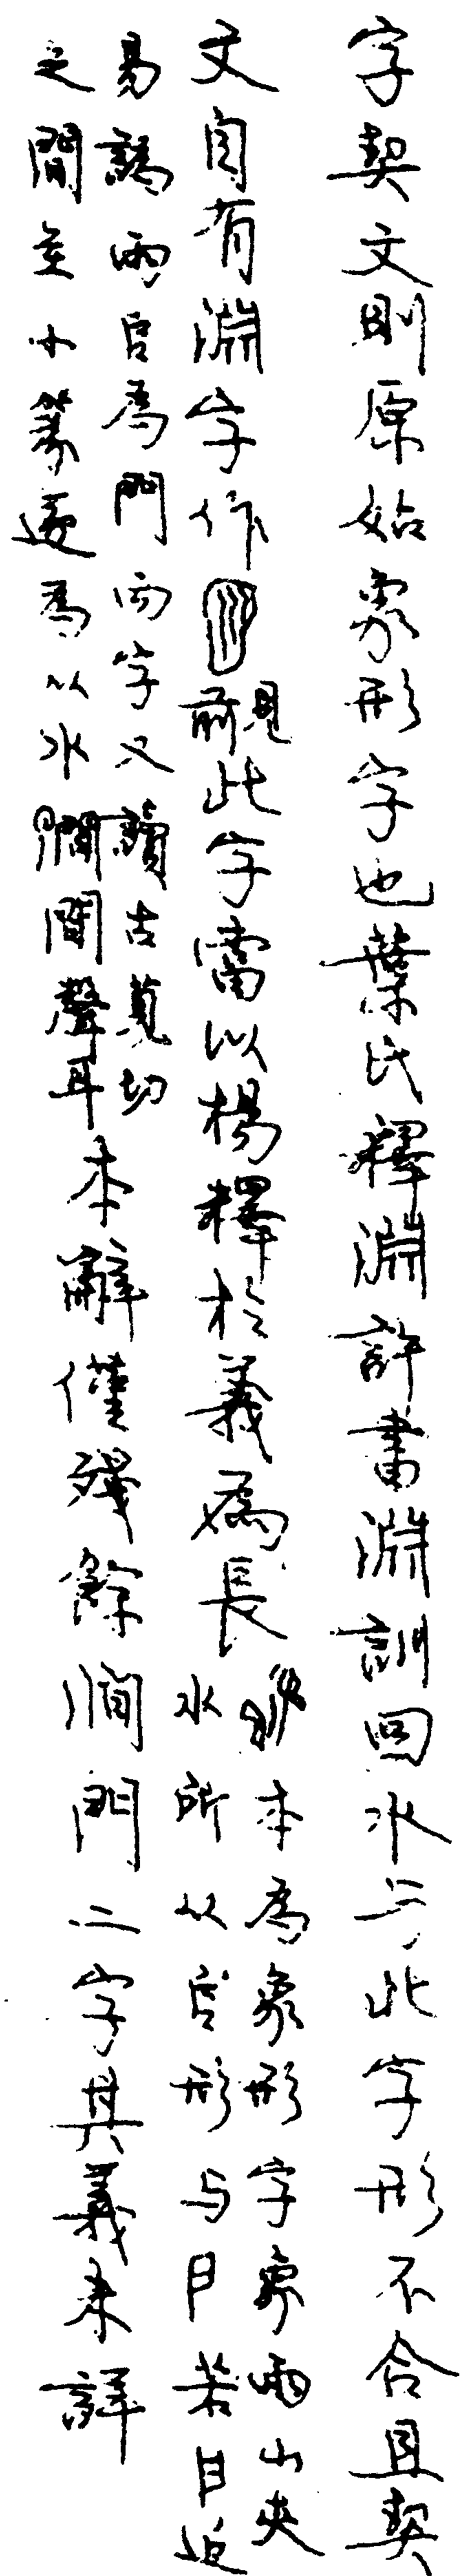 字契文則原始象形字也葉氏釋淵許書淵訓回水与此字形不合且契
文自有淵字作
見前
此字當以楊釋於義為長
本為象形字象兩山夾
水所从𠂤形与若日近
易譌兩𠂤為門而字又讀古莧切
之間至小篆遂為从水澗間聲耳
本辭僅殘餘澗門二字其義未詳